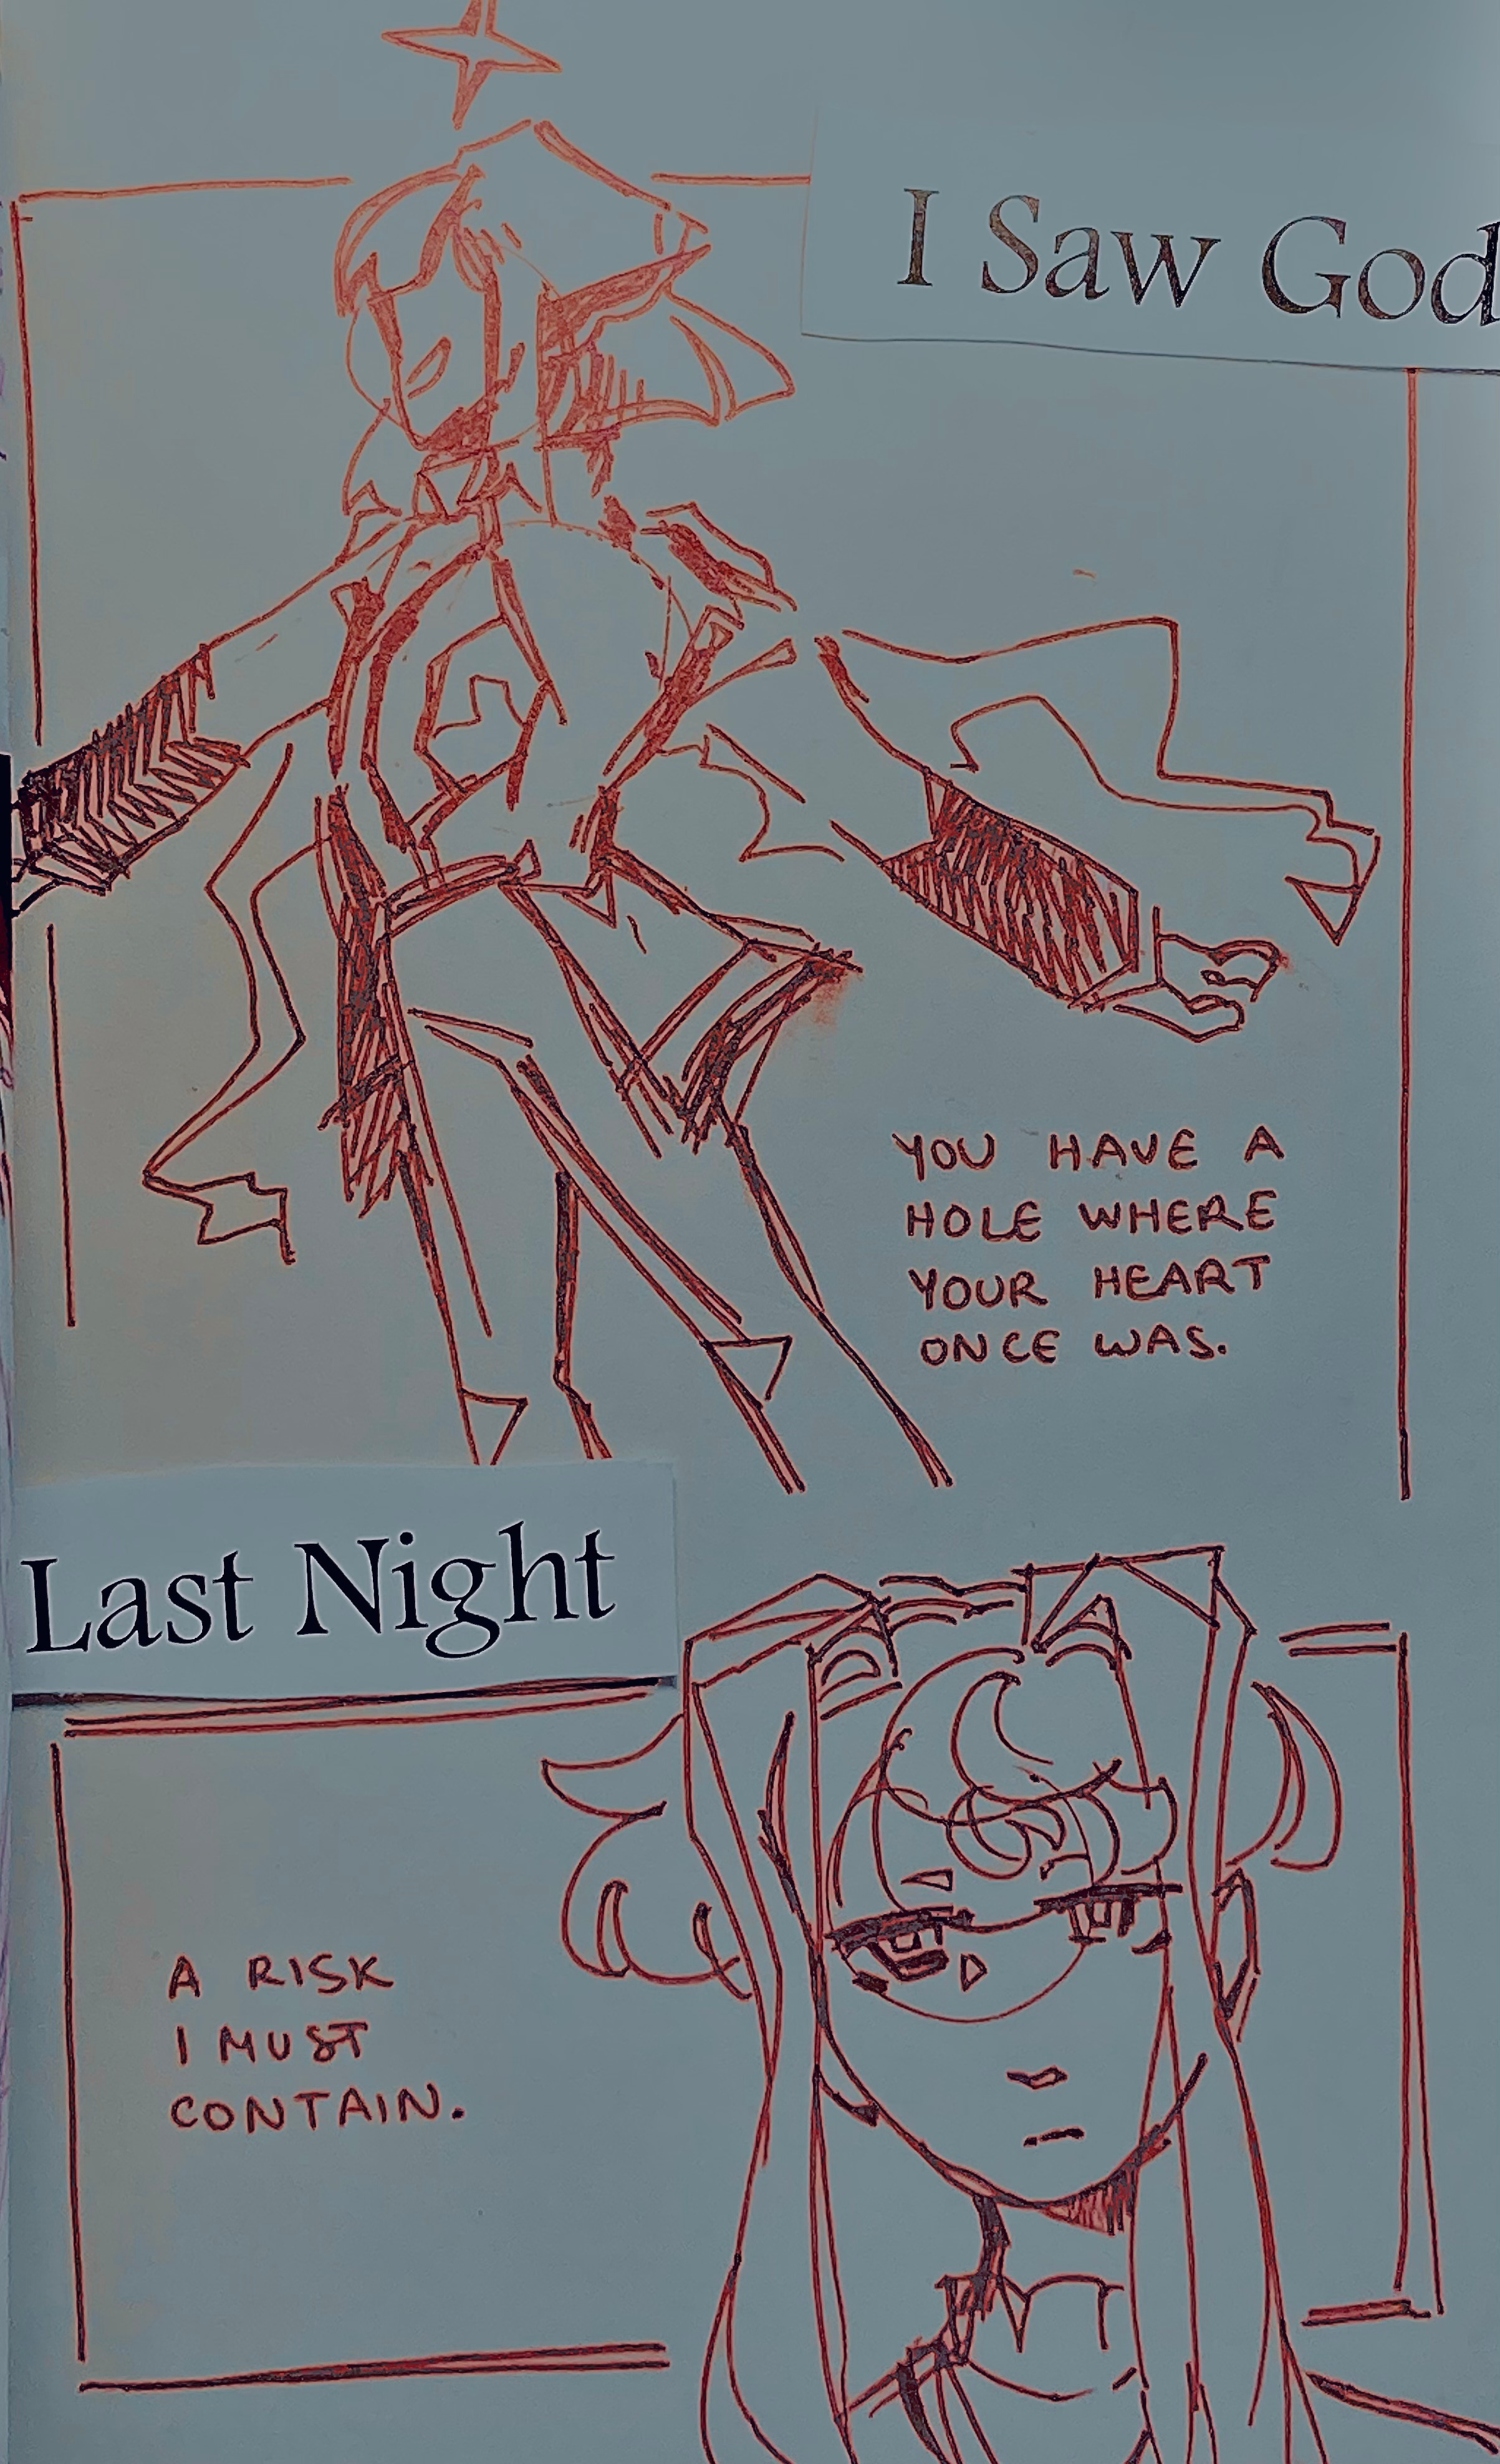 I Saw God
YOU HAVE A
HOLE WHERE
YOUR HEART
ONCE WAS.
Last Night
A RISK
I MUST
CONTAIN.